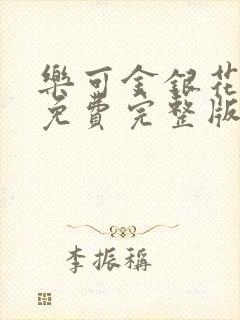 樂可金銀花
免費完整版
李振稱